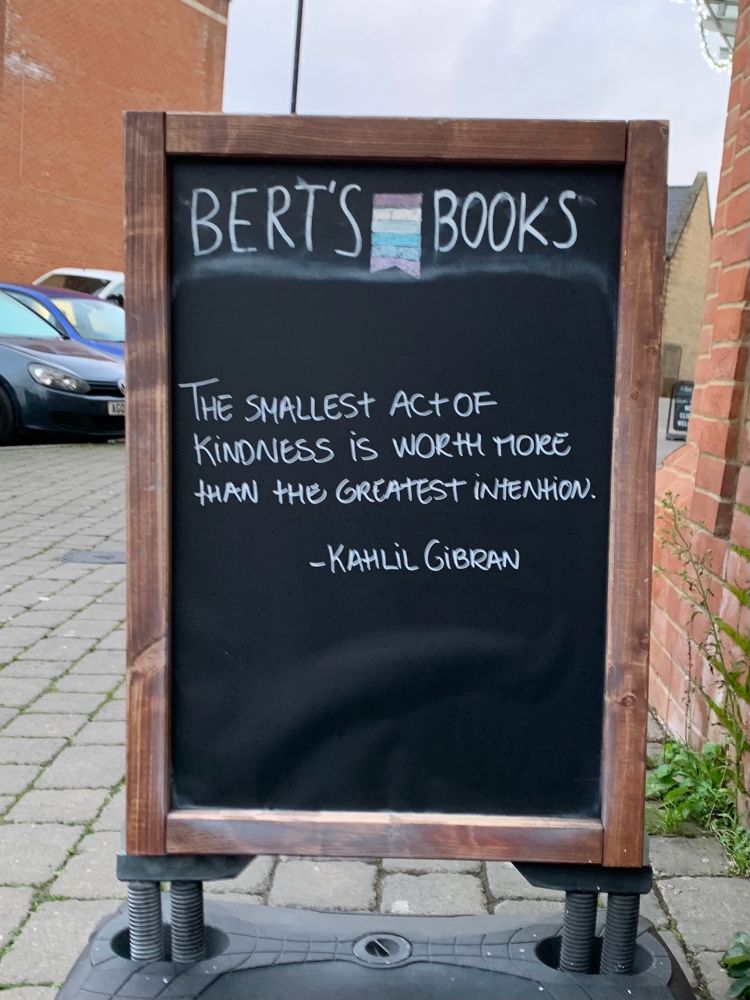 BERT'S BOOKS
THE SMALLEST ACT OF
KINDNESS IS WORTH MORE
THAN THE GREATEST INTENTION.
-KAHLIL GIBRAN